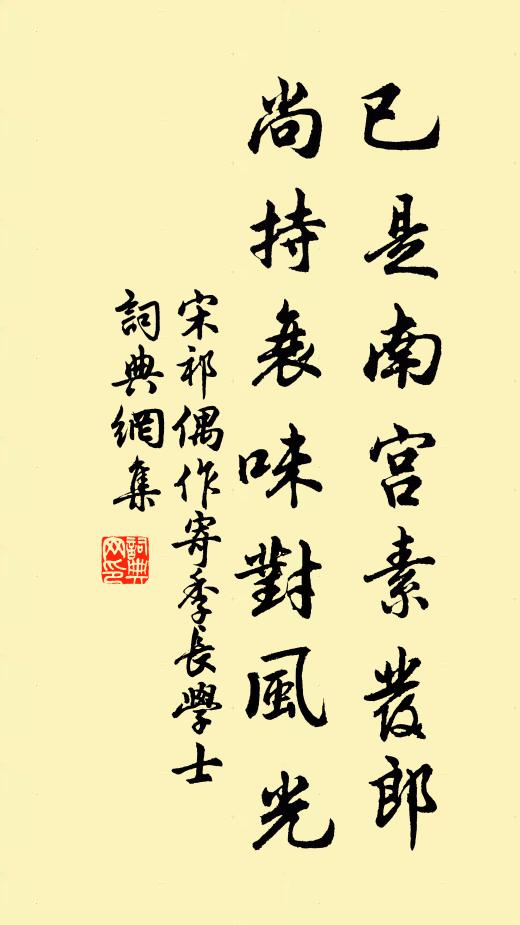 已是南宫素發郎
尚持衰味對風光
宋祁偶作寄季長學士
詞典網集
詞典網印